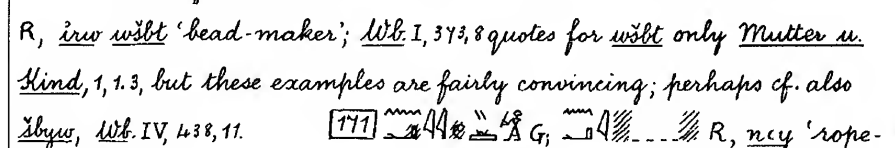 R, ỉrw wšbt 'bead-maker'; Wb. I, 373, 8 quotes for wšbt only Mutter u.
Kind, 1, 1.3, but these examples are fairly convincing; perhaps cf. also
šbyw, Wb. IV, 438, 11. [171] G; R, ncy 'rope-